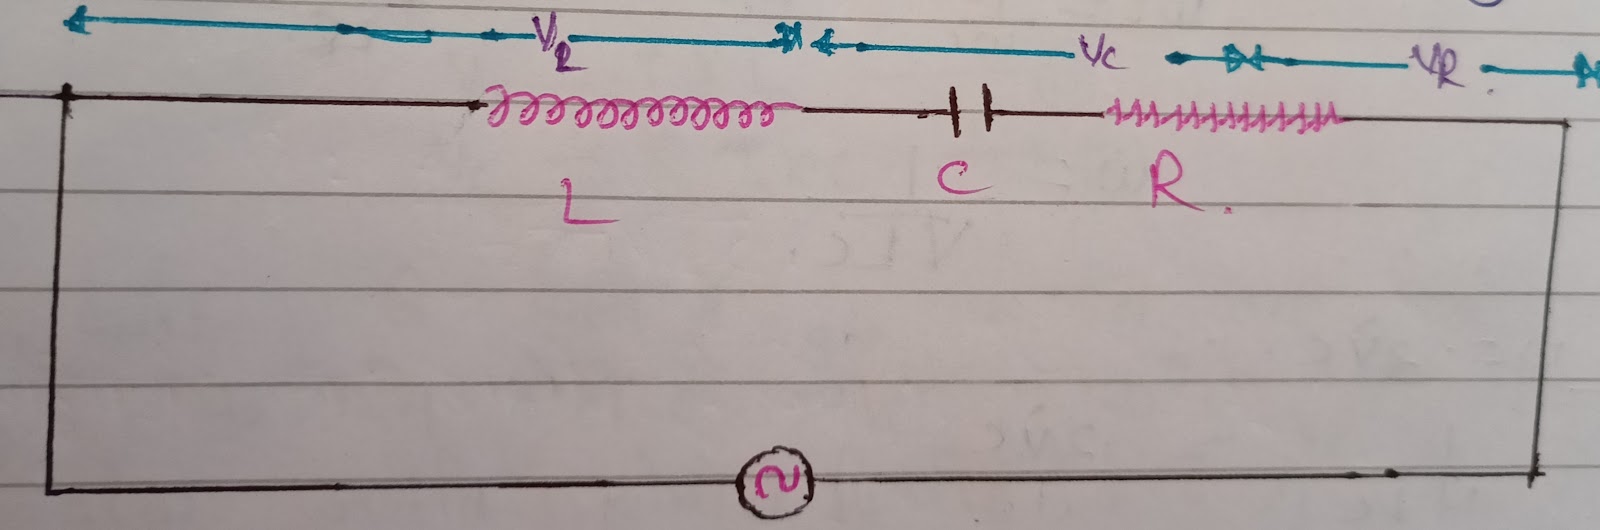 VR VC VR.
L C R.